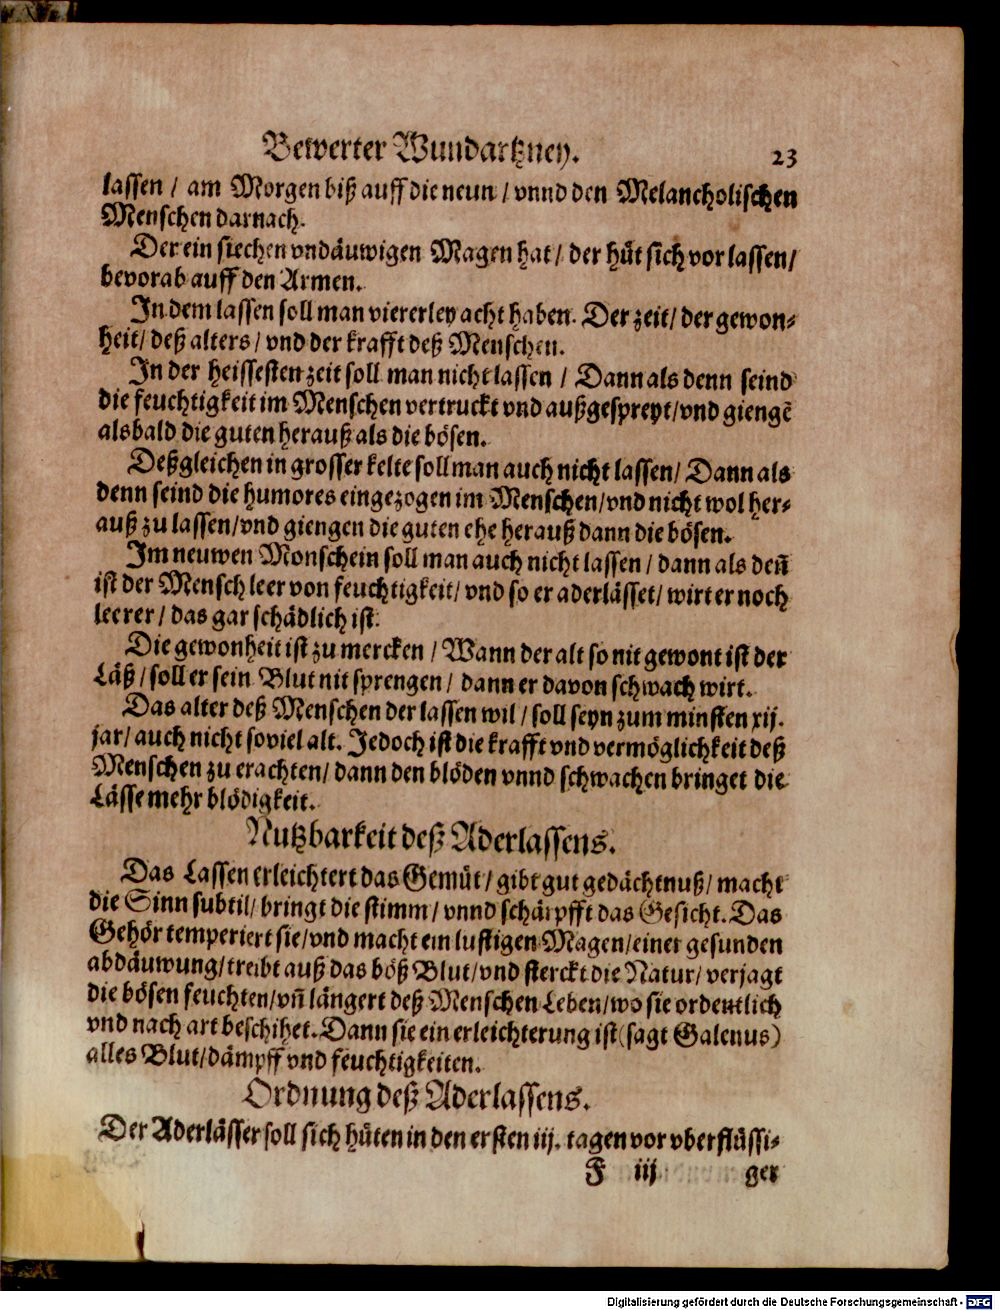 Bewerter Wundartzney. 23
lassen / am Morgen biß auff die neun / vnnd den Melancholischen
Menschen darnach.
Der ein siechen vndäuwigen Magen hat / der hüt sich vor lassen /
bevorab auff den Armen.
In dem lassen soll man viererley acht haben. Der zeit / der gewon⸗
heit / deß alters / vnd der krafft deß Menschen.
In der heissesten zeit soll man nicht lassen / Dann als denn seind
die feuchtigkeit im Menschen vertruckt vnd außgespreyt / vnd giengẽ
alsbald die guten herauß als die bösen.
Deßgleichen in grosser kelte soll man auch nicht lassen / Dann als
denn seind die humores eingezogen im Menschen / vnd nicht wol her⸗
auß zu lassen / vnd giengen die guten ehe herauß dann die bösen.
Im neuwen Monschein soll man auch nicht lassen / dann als den̄
ist der Mensch leer von feuchtigkeit / vnd so er aderlässet / wirt er noch
leerer / das gar schädlich ist.
Die gewonheit ist zu mercken / Wann der alt so nit gewont ist der
Läß / soll er sein Blut nit sprengen / dann er davon schwach wirt.
Das alter deß Menschen der lassen wil / soll seyn zum minsten xij.
jar / auch nicht soviel alt. Jedoch ist die krafft vnd vermöglichkeit deß
Menschen zu erachten / dann den blöden vnnd schwachen bringet die
Lässe mehr blödigkeit.
Nutzbarkeit deß Aderlassens.
Das Lassen erleichtert das Gemüt / gibt gut gedächtnuß / macht
die Sinn subtil / bringt die stimm / vnnd schärpfft das Gesicht. Das
Gehör temperiert sie / vnd macht ein lustigen Magen / einer gesunden
abdäuwung / treibt auß das böß Blut / vnd sterckt die Natur / verjagt
die bösen feuchten / vn̄ längert deß Menschen Leben / wo sie ordentlich
vnd nach art beschihet. Dann sie ein erleichterung ist (sagt Galenus)
alles Blut / dämpff vnd feuchtigkeiten.
Ordnung deß Aderlassens.
Der Aderlässer soll sich hüten in den ersten iij. tagen vor vberflüssi⸗
F iij ger
Digitalisierung gefördert durch die Deutsche Forschungsgemeinschaft - DFG